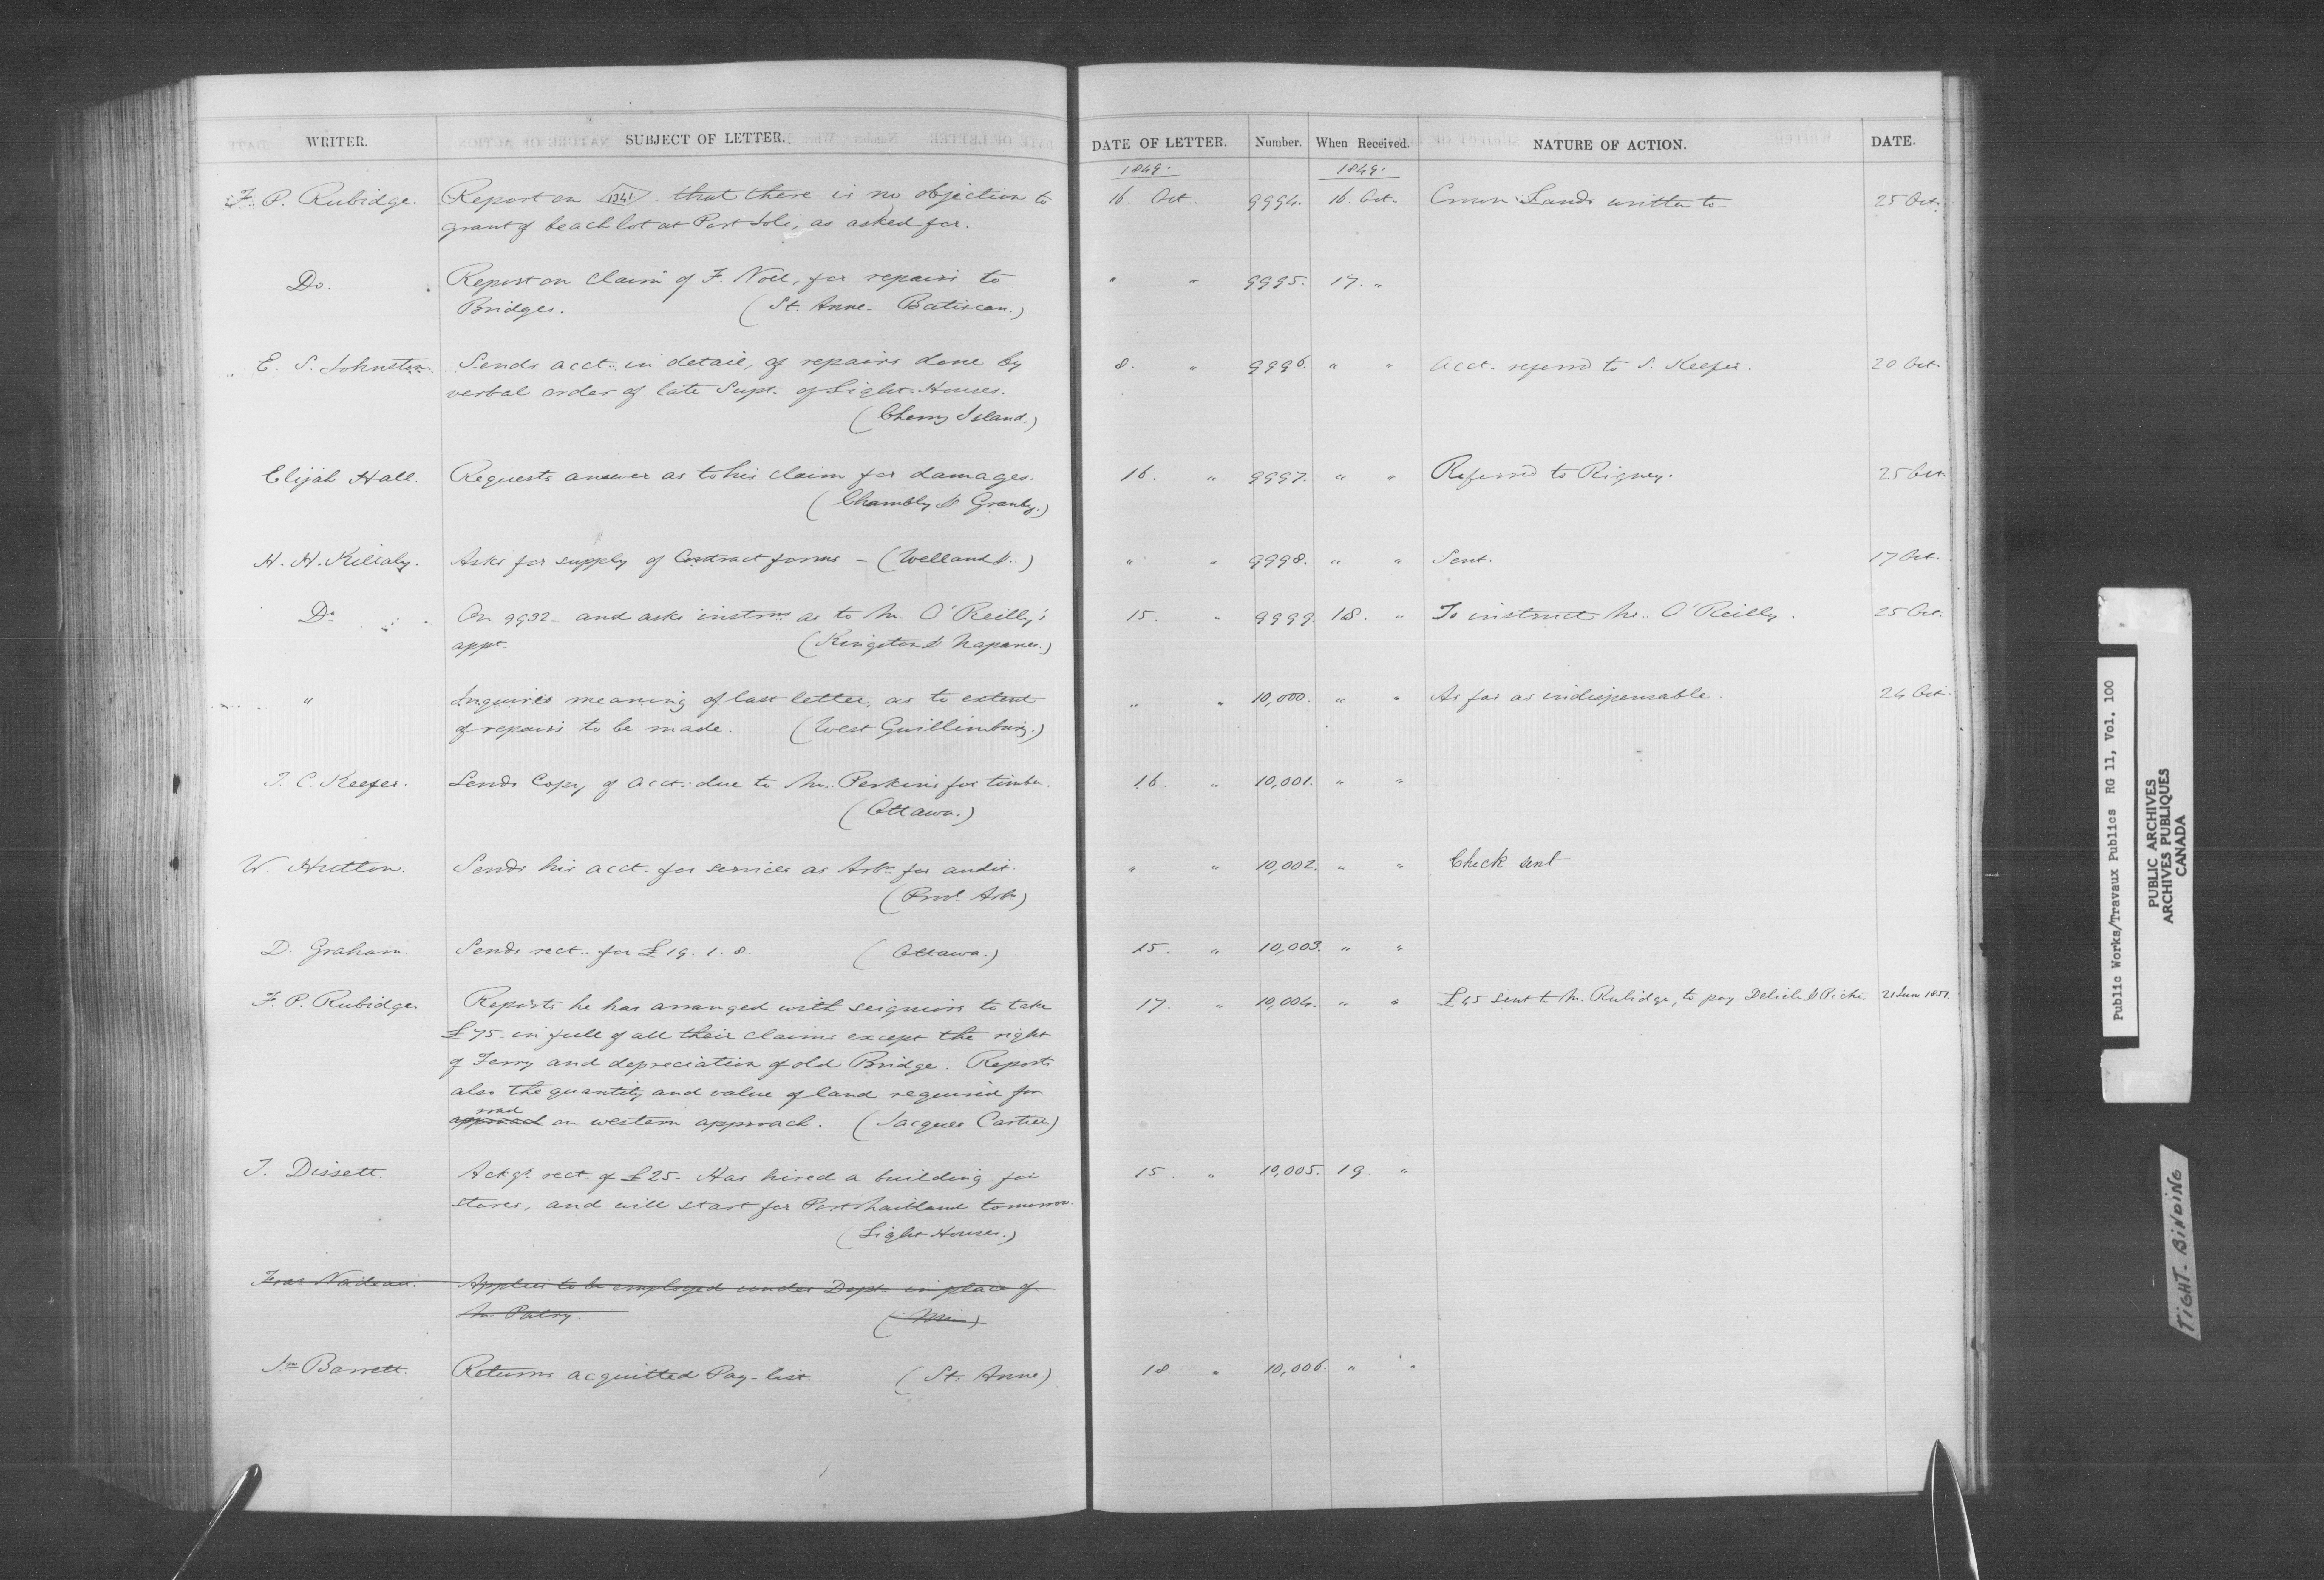 WRITER. SUBJECT OF LETTER. DATE OF LETTER. Number. When Received. NATURE OF ACTION. DATE.
1849. 1849.
F. P. Rubidge. Report on 1341 that there is no objection to 16. Oct. 9994. 16. Oct. Crown Lands written to 25 Oct.
grant of beach lot at Port Joli, as asked for.
Do. Report on claim of F. Noel, for repairs to " " 9995. 17. "
Bridges. (St. Anne - Batiscan.)
E. S. Johnston. Sends acct. in detail, of repairs done by 8. " 9996. " " Acct. referred to S. Keefer. 20 Oct.
verbal order of late Supt. of Light Houses.
(Cherry Island.)
Elijah Hall. Requests answer as to his claim for damages. 16. " 9997. " " Referred to Rigney. 25 Oct.
(Chambly & Granby.)
H. H. Killaly. Asks for supply of Contract forms - (Welland &.) " " 9998. " " Sent. 17 Oct.
Do. On 9932 - and asks instrns. as to Mr. O'Reilly's 15. " 9999. 18. " To instruct Mr. O'Reilly. 25 Oct.
appt. (Kingston & Napanee.)
" Inquires meaning of last letter, as to extent " " 10,000. " " As far as indispensable. 24 Oct.
of repairs to be made. (West Guillimbury.)
T. C. Keefer. Sends Copy of acct. due to Mr. Perkins for timber. 16. " 10,001. " "
(Ottawa.)
W. Hutton. Sends his acct. for services as Arbr. for audit. " " 10,002. " " Check sent
(Provl. Arbn.)
D. Graham. Sends rect. for £19. 1. 8. (Ottawa.) 15. " 10,003. " "
F. P. Rubidge Reports he has arranged with seigniors to take 17. " 10,004. " " £45 sent to Mr. Rubidge, to pay Delisle & Piché. 21 June 1851.
£75 - in full of all their claims except the right
of Ferry and depreciation of old Bridge. Reports
also the quantity and value of land required for
road
approach on western approach. (Jacques Cartier)
T. Dissett. Ackgs. rect. of £25 - Has hired a building for 15. " 10,005. 19. "
stores, and will start for Port Maitland tomorrow.
(Light Houses.)
Fras. Nadeau. Applies to be employed under Dept. in place of
Mr. Patry.
Jno. Barrett. Returns acquitted Pay-list. (St. Anne.) 18. " 10,006. " "
Public Works/Travaux Publics RG 11, Vol. 100
PUBLIC ARCHIVES
ARCHIVES PUBLIQUES
CANADA
TIGHT-BINDING